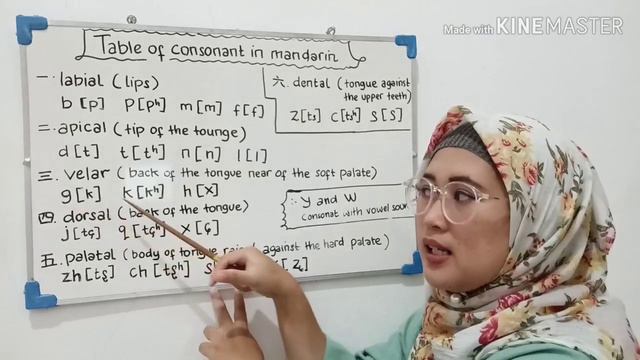 Made with KINEMASTER
Table of consonant in mandarin
一. labial (lips)
b [p] p [pʰ] m [m] f [f]
二. apical (tip of the tounge)
d [t] t [tʰ] n [n] l [l]
三. velar (back of the tongue near of the soft palate)
g [k] k [kʰ] h [x]
四. dorsal (back of the tongue)
j [tɕ] q [tɕʰ] x [ɕ]
五. palatal (body of tongue against the hard palate)
zh [tʂ] ch [tʂʰ] [ʐ]
六. dental (tongue against
the upper teeth)
z [ts] c [tsʰ] s [s]
∴ y and w
consonat with vowel